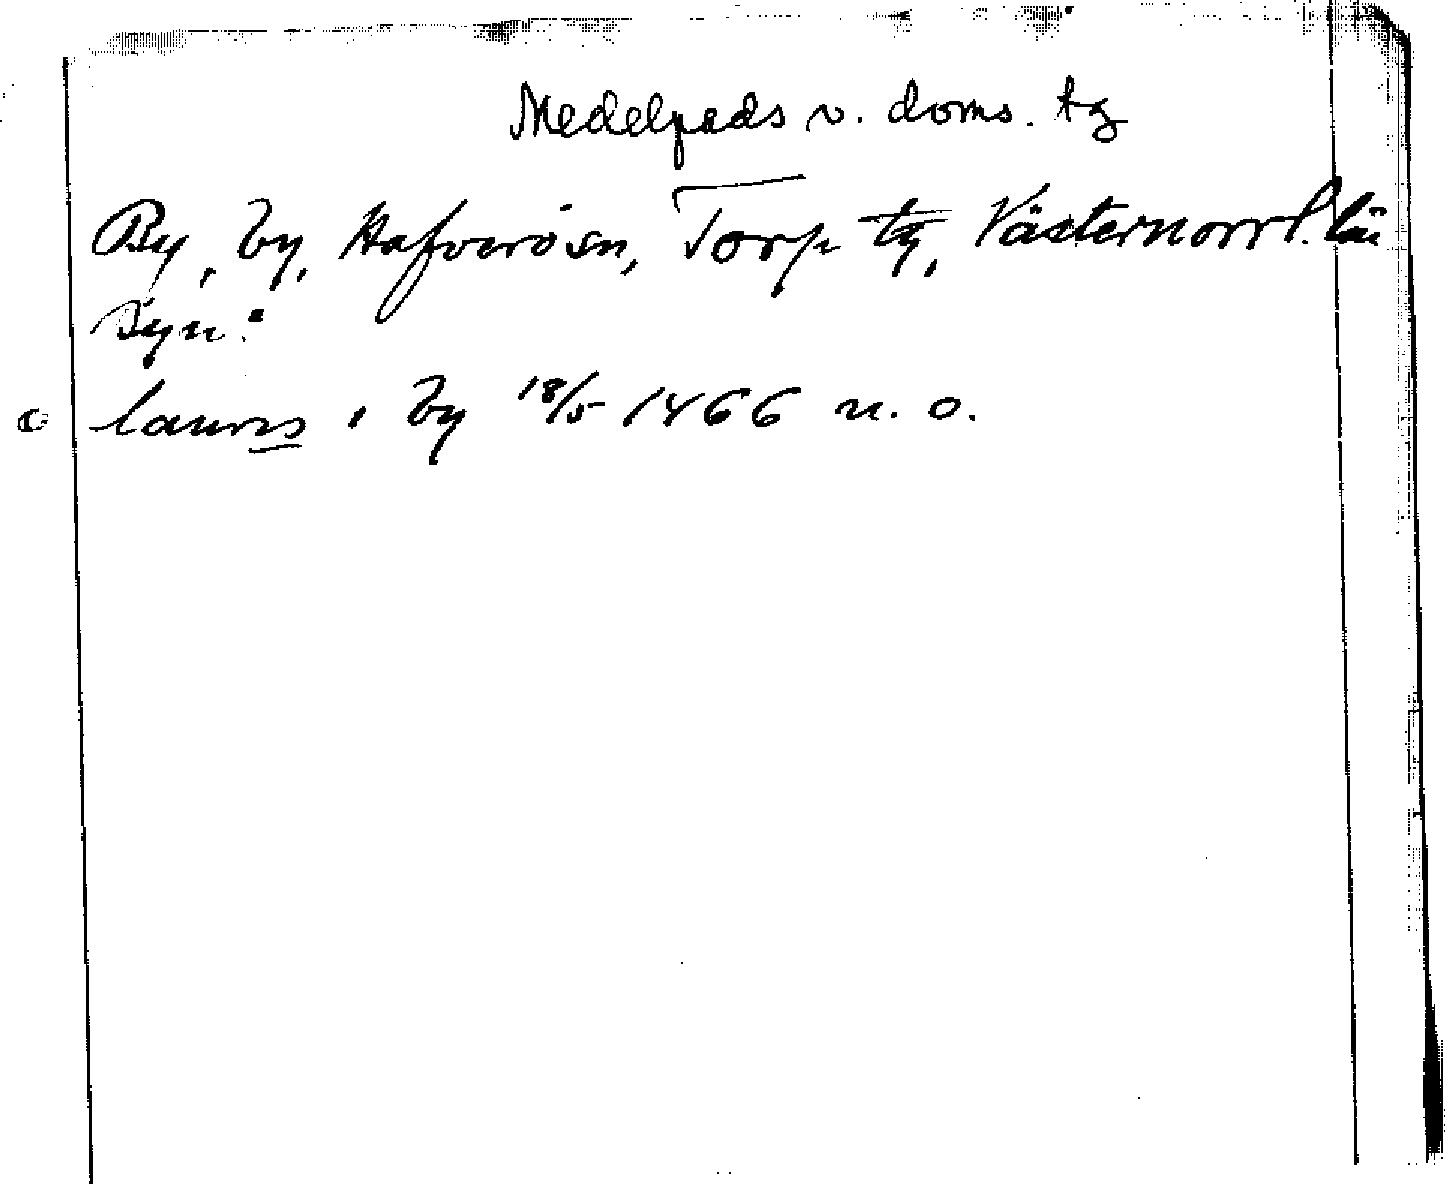 Medelpads v. doms. tg
By, by, Hafverösn, Torp tg, Västernorrl. län
Syn:
c laurns i By 18/5 1466 n. o.